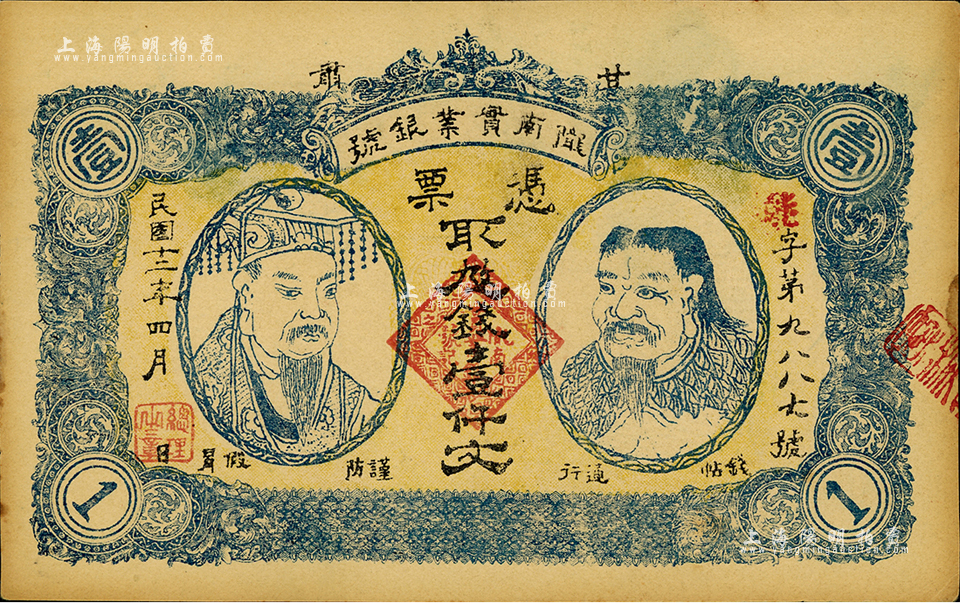 上海陽明拍賣
www.yangmingauction.com
甘肅
隴南實業銀號
壹
壹
憑票
取
錢壹仟文
字第九八八七號
民國十二年四月 日
總理之章
錢帖通行
謹防假冒
1
1
上海陽明拍賣
www.yangmingauction.com
上海陽明拍賣
www.yangmingauction.com